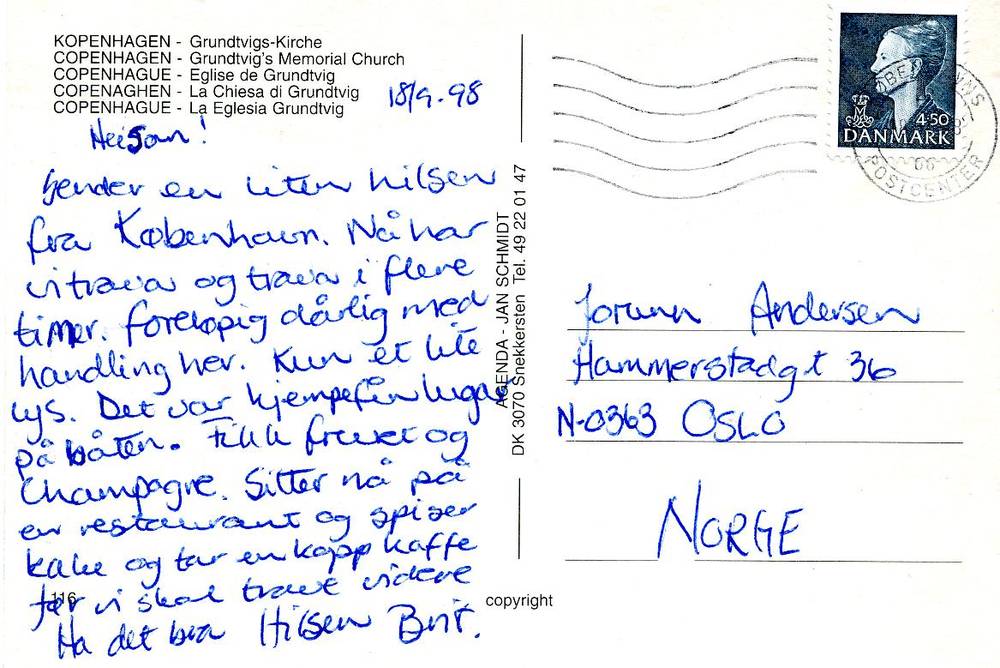 KOPENHAGEN - Grundtvigs-Kirche
COPENHAGEN - Grundtvig's Memorial Church
COPENHAGUE - Eglise de Grundtvig
COPENAGHEN - La Chiesa di Grundtvig
COPENHAGUE - La Eglesia Grundtvig
18/9-98
Heisan!
Sender en liten hilsen
fra København. Nå har
vi trava og trava i flere
timer. Foreløpig dårlig med
handling her. Kun et lite
lys. Det var kjempefin lugar
på båten. Fikk frukt og
Champagne. Sitter nå på
en restaurant og spiser
kake og tar en kopp kaffe
før vi skal trave videre
Ha det bra Hilsen Brit.
116
AGENDA - JAN SCHMIDT
DK 3070 Snekkersten Tel. 49 22 01 47
copyright
4.50
DANMARK
POSTCENTER
Jorunn Andersen
Hammerstadgt 36
N-0363 OSLO
NORGE